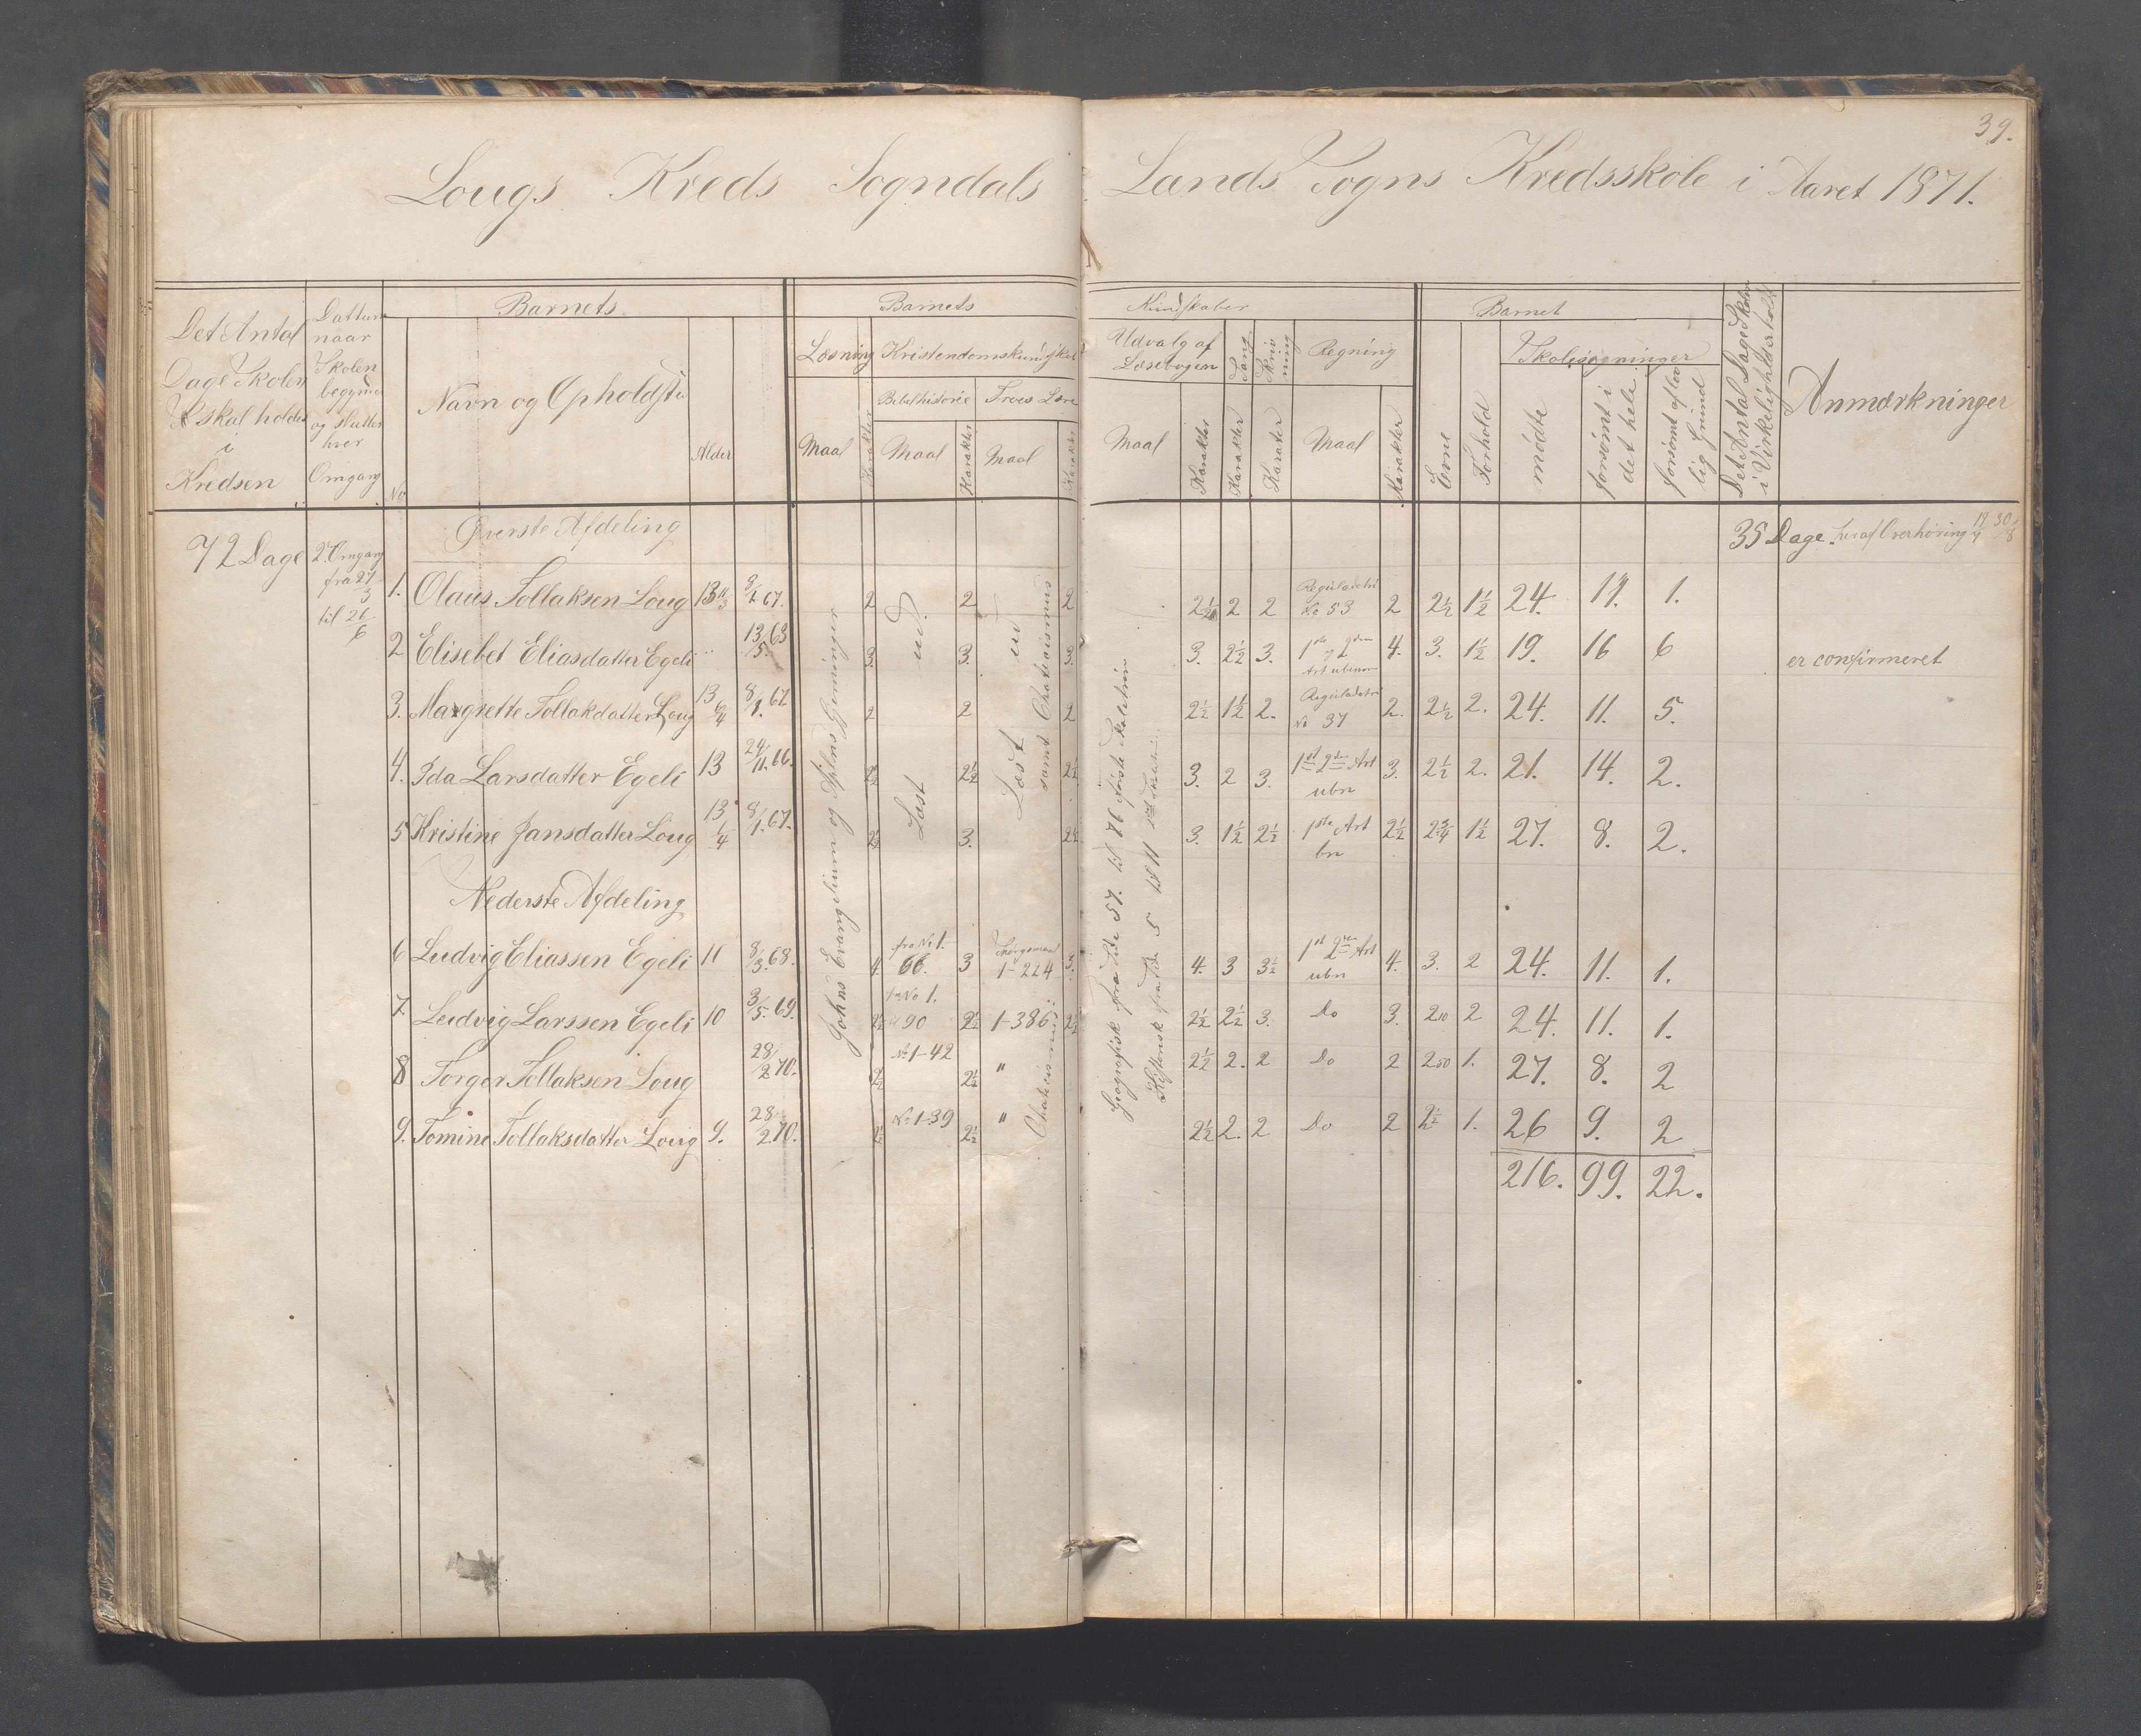 39.
Lougs Kreds Sogndals Lands Sogns Kredsskole i Aaret 1871.
Det Antal Dage Skolen skal holdes i Kredsen
Dattum naar Skolen begynder og slutter hver Omgang
Barnets
No
Navn og Opholdsted
Alder
Barnets Kundskaber
Læsning
Maal
Karakter
Kristendomskundskab
Bibelhistorie
Maal
Karakter
Troes Lære
Maal
Karakter
Udvalg af Læsebogen
Maal
Karakter
Sang
Karakter
Skrivning
Karater
Regning
Maal
Karakter
Barnet
Evne
Forhold
Skolesøgninger
mødte
forsømt i det hele
forsømt af lovlig Grund
Det Antal Dage Skolen i Virkeligheden er holdt
Anmærkninger
72 Dage
2. Omgang fra 27/3 til 26/6
Øverste Afdeling
35 Dage heraf Overhøring 19/7 30/8
Johns Evangelium og Apless Gjerninger
Læst ud.
Læst ud samt Chatecismus
Geografisk fra Side 57. til 76 første
Historisk fra Side 5 til 11
1. Olaus Tollaksen Loug 13 11/3 8/1 67. 2 2 2 2½ 2 2 Reguladetri No 53 2 2½ 1½ 24. 11. 1.
2 Elisebet Eliasdatter Egeli " 13/5 63 3. 3. 3. 3. 2½ 3. 1ste og 2den Art ubenn 4. 3. 1½ 19. 16 6 er confirmeret
3. Margrette Tollakdatter Loug 13 6/4 8/1. 67 2 2 2 2½ 1½ 2. Reguladetri No 37 2. 2½ 2. 24. 11. 5.
4. Ida Larsdatter Egeli 13 24/11. 66. 2½ 2½ 2½ 3. 2 3. 1ste 2den Art ubn 3. 2½ 2. 21. 14. 2.
5 Kristine Jansdatter Loug 13 1/4 8/1. 67. 2½ 3. 2½ 3. 1½ 2½ 1ste Art bn 2½ 2¾ 1½ 27. 8. 2.
Nederste Afdeling
6 Ludvig Eliassen Egeli 11 8/3. 68. 4. fra No 1. 66. 3 Spørgsmaal 1-224 3. 4. 3 3½ 1st 2den Art ubn 4. 3. 2 24. 11. 1.
7. Ludvig Larssen Egeli 10 3/5. 69. 2½ fra No 1. 90 2½ 1-386 2½ 2½ 2½ 3. Do 3. 2 2 24. 11. 1.
8 Torger Tollaksen Loug 28/2 70. 2½ No 1-42 2½ " 2½ 2. 2 Do 2 2 1. 27. 8. 2
9. Tomine Tollaksdatter Loug 9. 28/2 70. 2½ No 1-39 2½ " 2½ 2. 2 Do 2 2½ 1. 26 9. 2
Chatecismus
216. 99. 22.